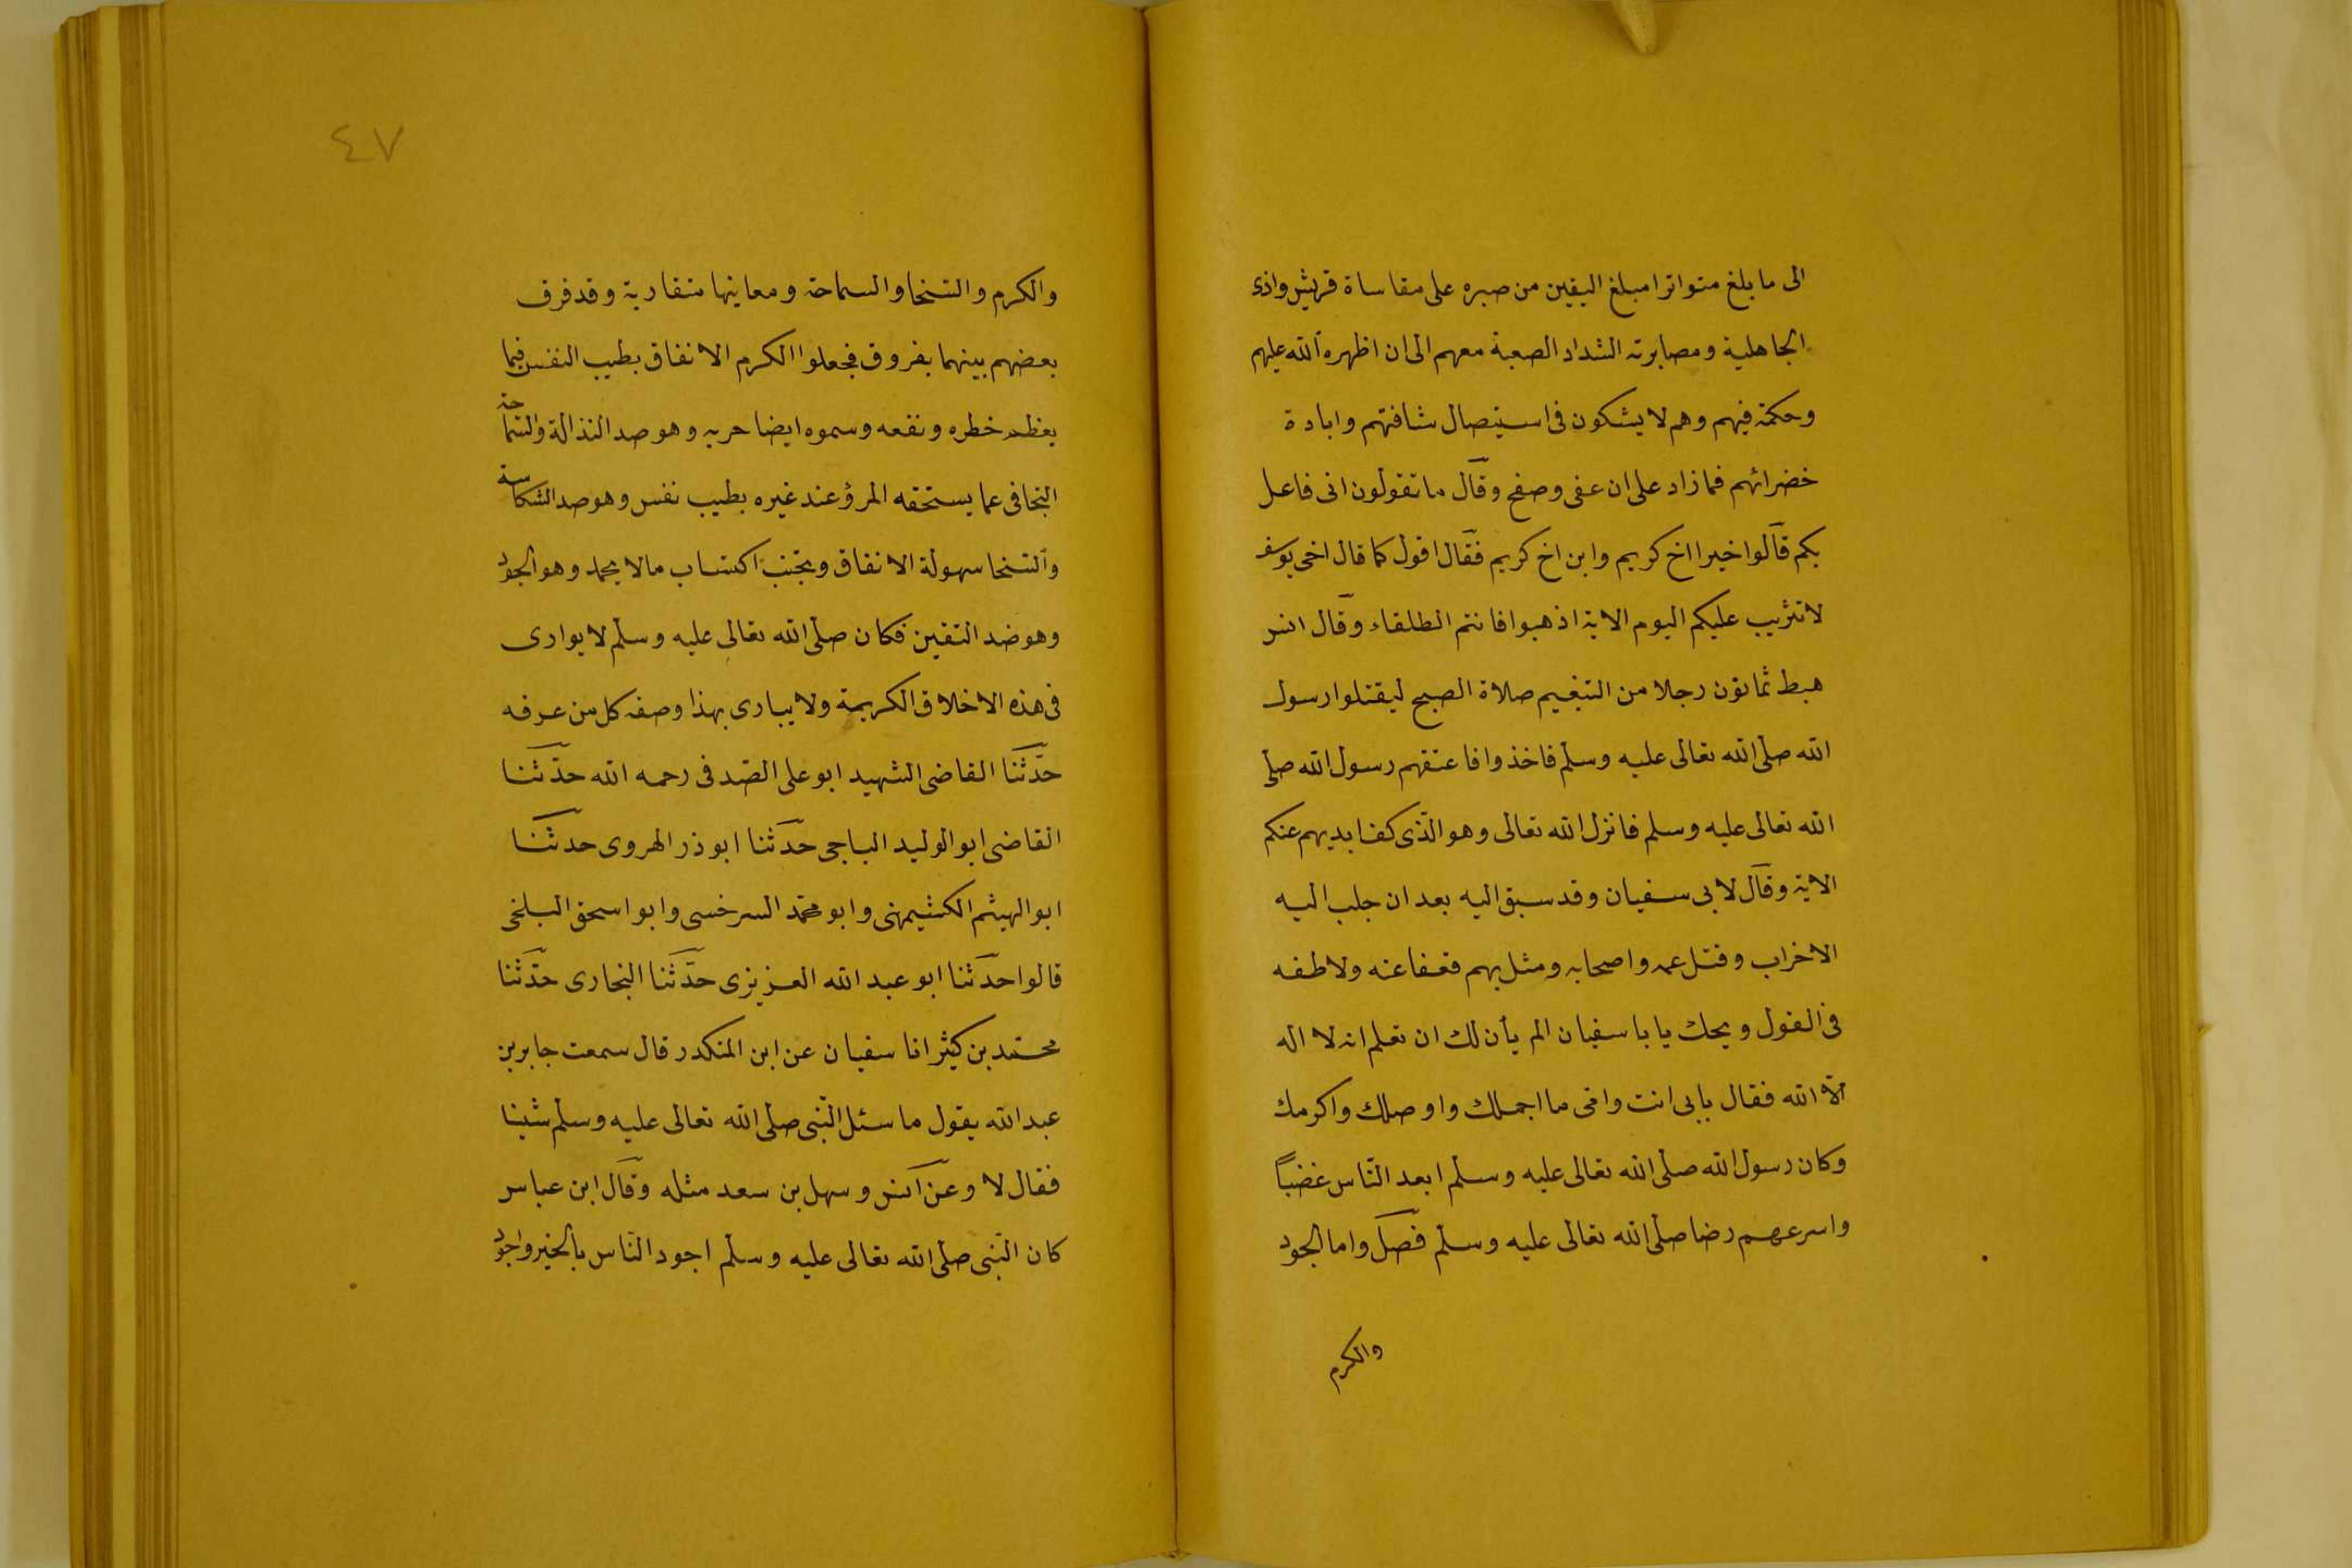 الى ما بلغ متواترا مبلغ اليقين من صبره على مقاساة قريش واذى
الجاهلية ومصابرته الشداد الصعبة معهم الى ان اظهره الله عليهم
وحكمه فيهم وهم لا يشكون فى استيصال شافتهم وابادة
خضرائهم فما زاد على ان عفى وصفح وقال ما تقولون انى فاعل
بكم قالوا خيرا اخ كريم وابن اخ كريم فقال اقول كما قال اخى يوسف
لا تثريب عليكم اليوم الاية اذهبوا فانتم الطلقاء وقال انس
هبط ثمانون رجلا من التنعيم صلاة الصبح ليقتلوا رسول
الله صلى الله تعالى عليه وسلم فاخذوا فاعتقهم رسول الله صلى
الله تعالى عليه وسلم فانزل الله تعالى وهو الذى كف ايديهم عنكم
الاية وقال لابى سفيان وقد سبق اليه بعد ان جلب اليه
الاخراب وقتل عمه واصحابه ومثل بهم فعفا عنه ولاطفه
فى القول ويحك يا با سفيان الم يأن لك ان تعلم انه لا اله
الا الله فقال بابى انت وامى ما اجملك واوصلك واكرمك
وكان رسول الله صلى الله تعالى عليه وسلم ابعد الناس غضباً
واسرعهم رضا صلى الله تعالى عليه وسلم فصل واما الجود
والكرم
٤٧
والكرم والسخا والسماحة ومعاينها متقاربة وقد فرق
بعضهم بينهما بفروق فجعلوا الكرم الانفاق بطيب النفس فيما
يعظم خطره ونفعه وسموه ايضا حريه وهو ضد النذالة والسماحة
التجافى عما يستحقه المرؤ عند غيره بطيب نفس وهو ضد الشكاسة
والسخا سهولة الانفاق وتجنب اكتساب ما لا يحمد وهو الجود
وهو ضد التقين فكان صلى الله تعالى عليه وسلم لا يوارى
فى هذه الاخلاق الكريمة ولا يبارى بهذا وصفه كل من عرفه
حدّثنا القاضى الشهيد ابو على الصّدفى رحمه الله حدّثنا
القاضى ابو الوليد الباجى حدّثنا ابو ذر الهروى حدثنا
ابو الهيثم الكشيمهنى وابو محمد السرخسى وابو اسحق البلخى
قالوا حدّثنا ابو عبد الله العزيزى حدّثنا البخارى حدّثنا
محمد بن كثير انا سفيان عن ابن المنكدر قال سمعت جابر بن
عبد الله يقول ما سئل النبى صلى الله تعالى عليه وسلم شيئا
فقال لا وعن انس وسهل بن سعد مثله وقال ابن عباس
كان النبى صلى الله تعالى عليه وسلم اجود الناس بالخير واجود